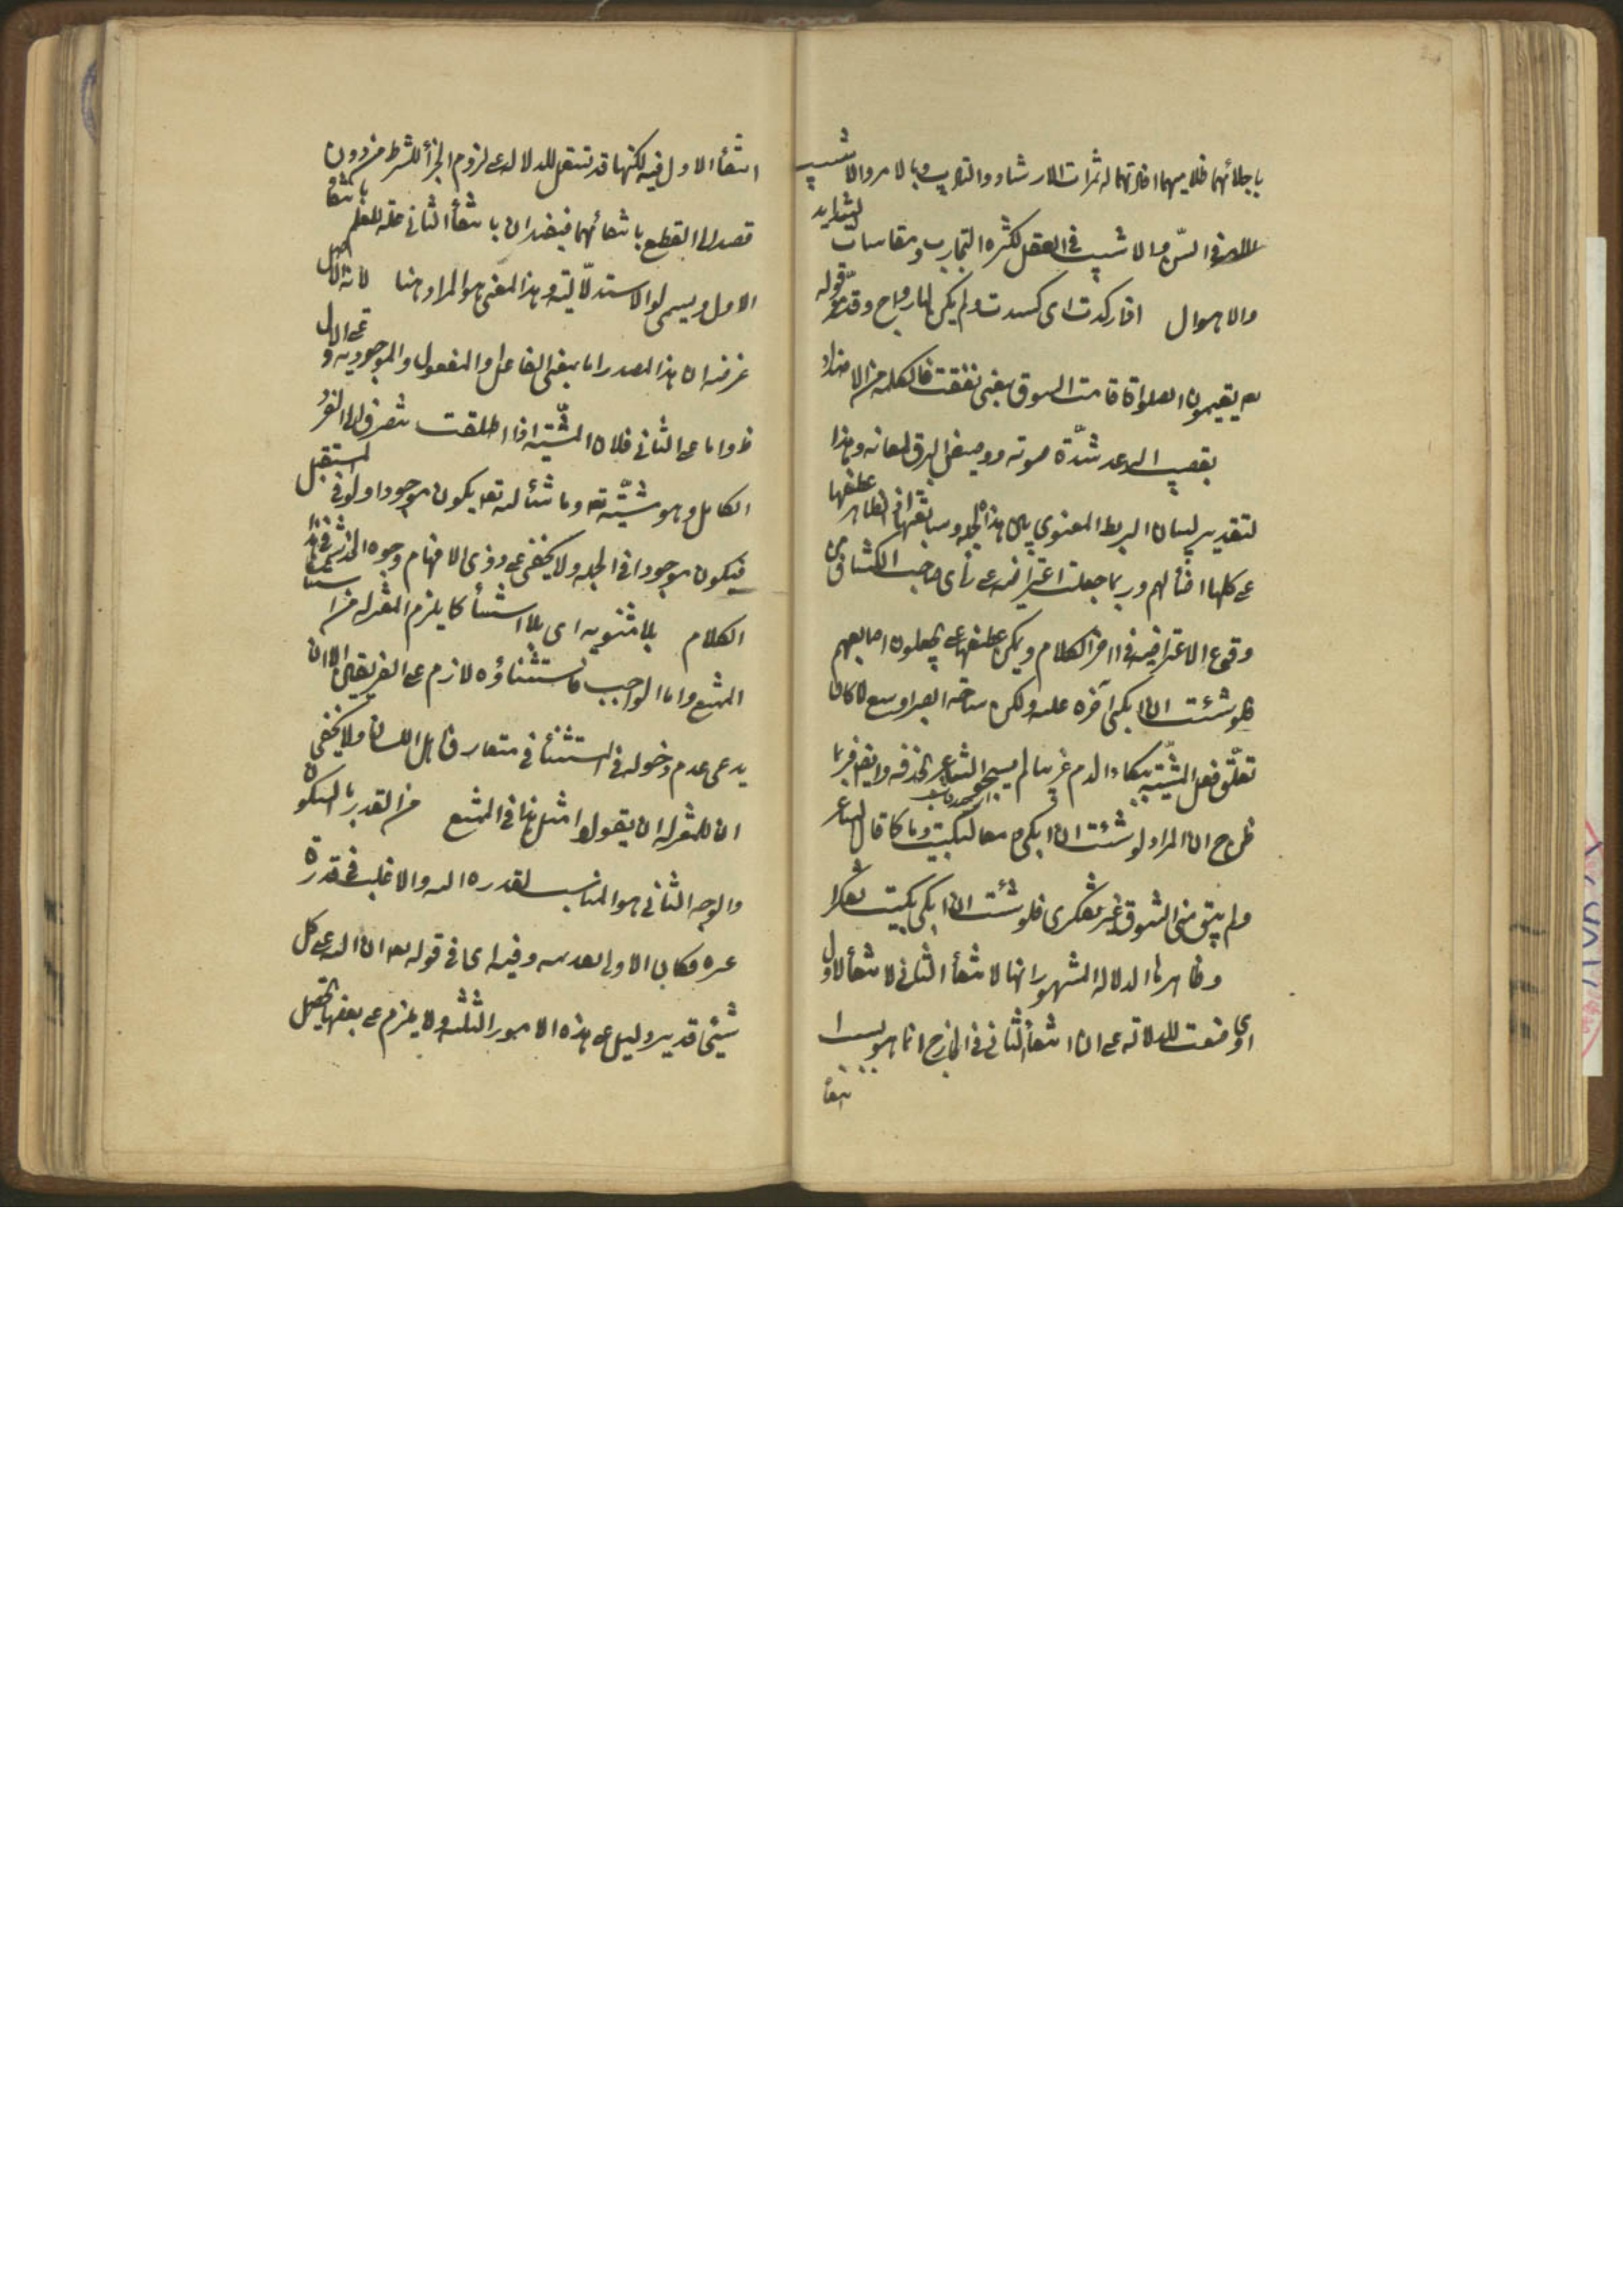 باجلائهما ظلاميهما افادتهما له ثمرات الارشاد والتاديب وبالامرد الاشيب
الامرد فى السن والاشيب فى العقل لكثرة التجارب ومقاسات الشدايد
والاهوال اذا ركدت اى كسدت ولم يكن لها رواج وقد مر قوله
تعه يقيمون الصلواة قامت السوق بمعنى نفقت فالكلمة من الاضداد
بقصيب الرعد شدة صوته ووميض البرق لمعانه وهذا
لتقدير لبيان الربط المعنوى بين هذه الجملة وسابقتها الظاهر عطفها
على كلما اضألهم وربما جعلت اعتراضية على رأى صاحب الكشاف من
وقوع الاعتراضية فى اخر الكلام ويمكن عطفها على يجعلون اصابعهم
فلو شئت ان ابكى آخره عليه ولكن ساحة الصبر اوسع لما كان
تعلق فعل المشية ببكاء الدم غريبا لم يسمح الشاعر بحذفه وايضا فربما
ظن ح ان المراد لو شئت ان ابكى دمعا لبكيت دما كما قال الشاعر
ولم يبق منى الشوق غير تفكرى فلو شئت ان ابكى بكيت تفكرا
وظاهرها الدلالة المشهور انها لانتفأ الثانى لانتفأ الاول
اى وضعت للدلالة على ان انتفأ الثانى فى الخارج انما هو بسبب
انتفأ
انتفأ الاول فيه لكنها قد تستعمل للدلالة على لزوم الجزأ للشرط من دون
قصد الى القطع بانتفائهما فيفيد ان بانتفأ الثانى علة للعلم بانتفأ
الاول ويسمى لو الاستدلالية وهذا المعنى هو المراد هنا لانه الاصل
غرضه ان هذا المصدر اما بمعنى الفاعل والمفعول والموجودية على الاول
ظ واما على الثانى فلان المشية اذا اطلقت تنصرف الى الفرد
الكامل وهو مشيته تعه وما شأ الله تعه يكون موجودا ولو فى المستقبل
فيكون موجودا فى الجملة ولا يخفى على ذوى الافهام وجوه الخدشة فى هذا
الكلام بلا مثنوية اى بلا استثنأ كما يلزم المعتزله من استثنأ
الممتنع واما الواجب فاستثناؤه لازم على الفريقين الا ان
يدعى عدم دخوله فى الاستثنأ فى متعارف اهل اللسان ولا يخفى
ان للمعتزله ان يقولوا مثل هذا فى الممتنع من القدر بالسكون
والوجه الثانى هو المناسب لقدرة الله والاغلب فى قدرة
غيره فكان الاولى تقديمه وفيه اى فى قوله تعه ان الله على كل
شيئ قدير دليل على هذه الامور الثلثة ولا يلزم على بعضها تحصيل